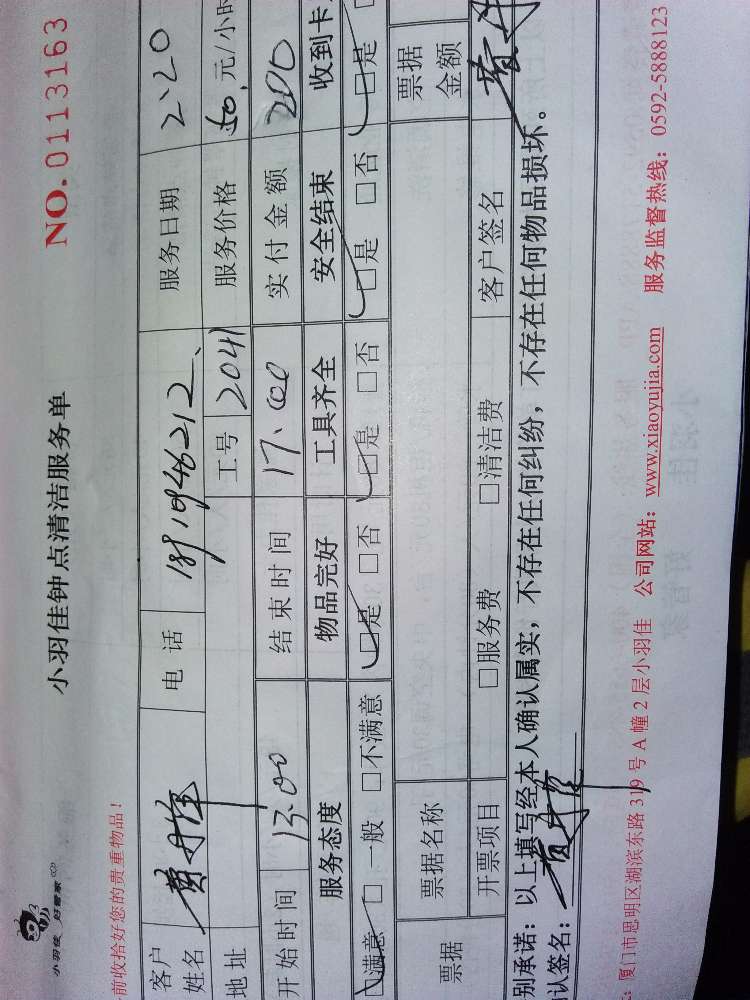 小羽佳 好管家
小羽佳钟点清洁服务单
NO.0113163
前收拾好您的贵重物品！
客户姓名 电话 服务日期 2.20
地址 工号 2041 服务价格 50元/小时
开始时间 13:00 结束时间 17:00 实付金额 200
服务态度 物品完好 工具齐全 安全结束 收到卡
□满意 □一般 □不满意 □是 □否 □是 □否 □是 □否 □是
票据 票据名称 票据金额
开票项目 □服务费 □清洁费 客户签名
别承诺：以上填写经本人确认属实，不存在任何纠纷，不存在任何物品损坏。
认签名：
：厦门市思明区湖滨东路319号A幢2层小羽佳 公司网站：www.xiaoyujia.com 服务监督热线：0592-5888123